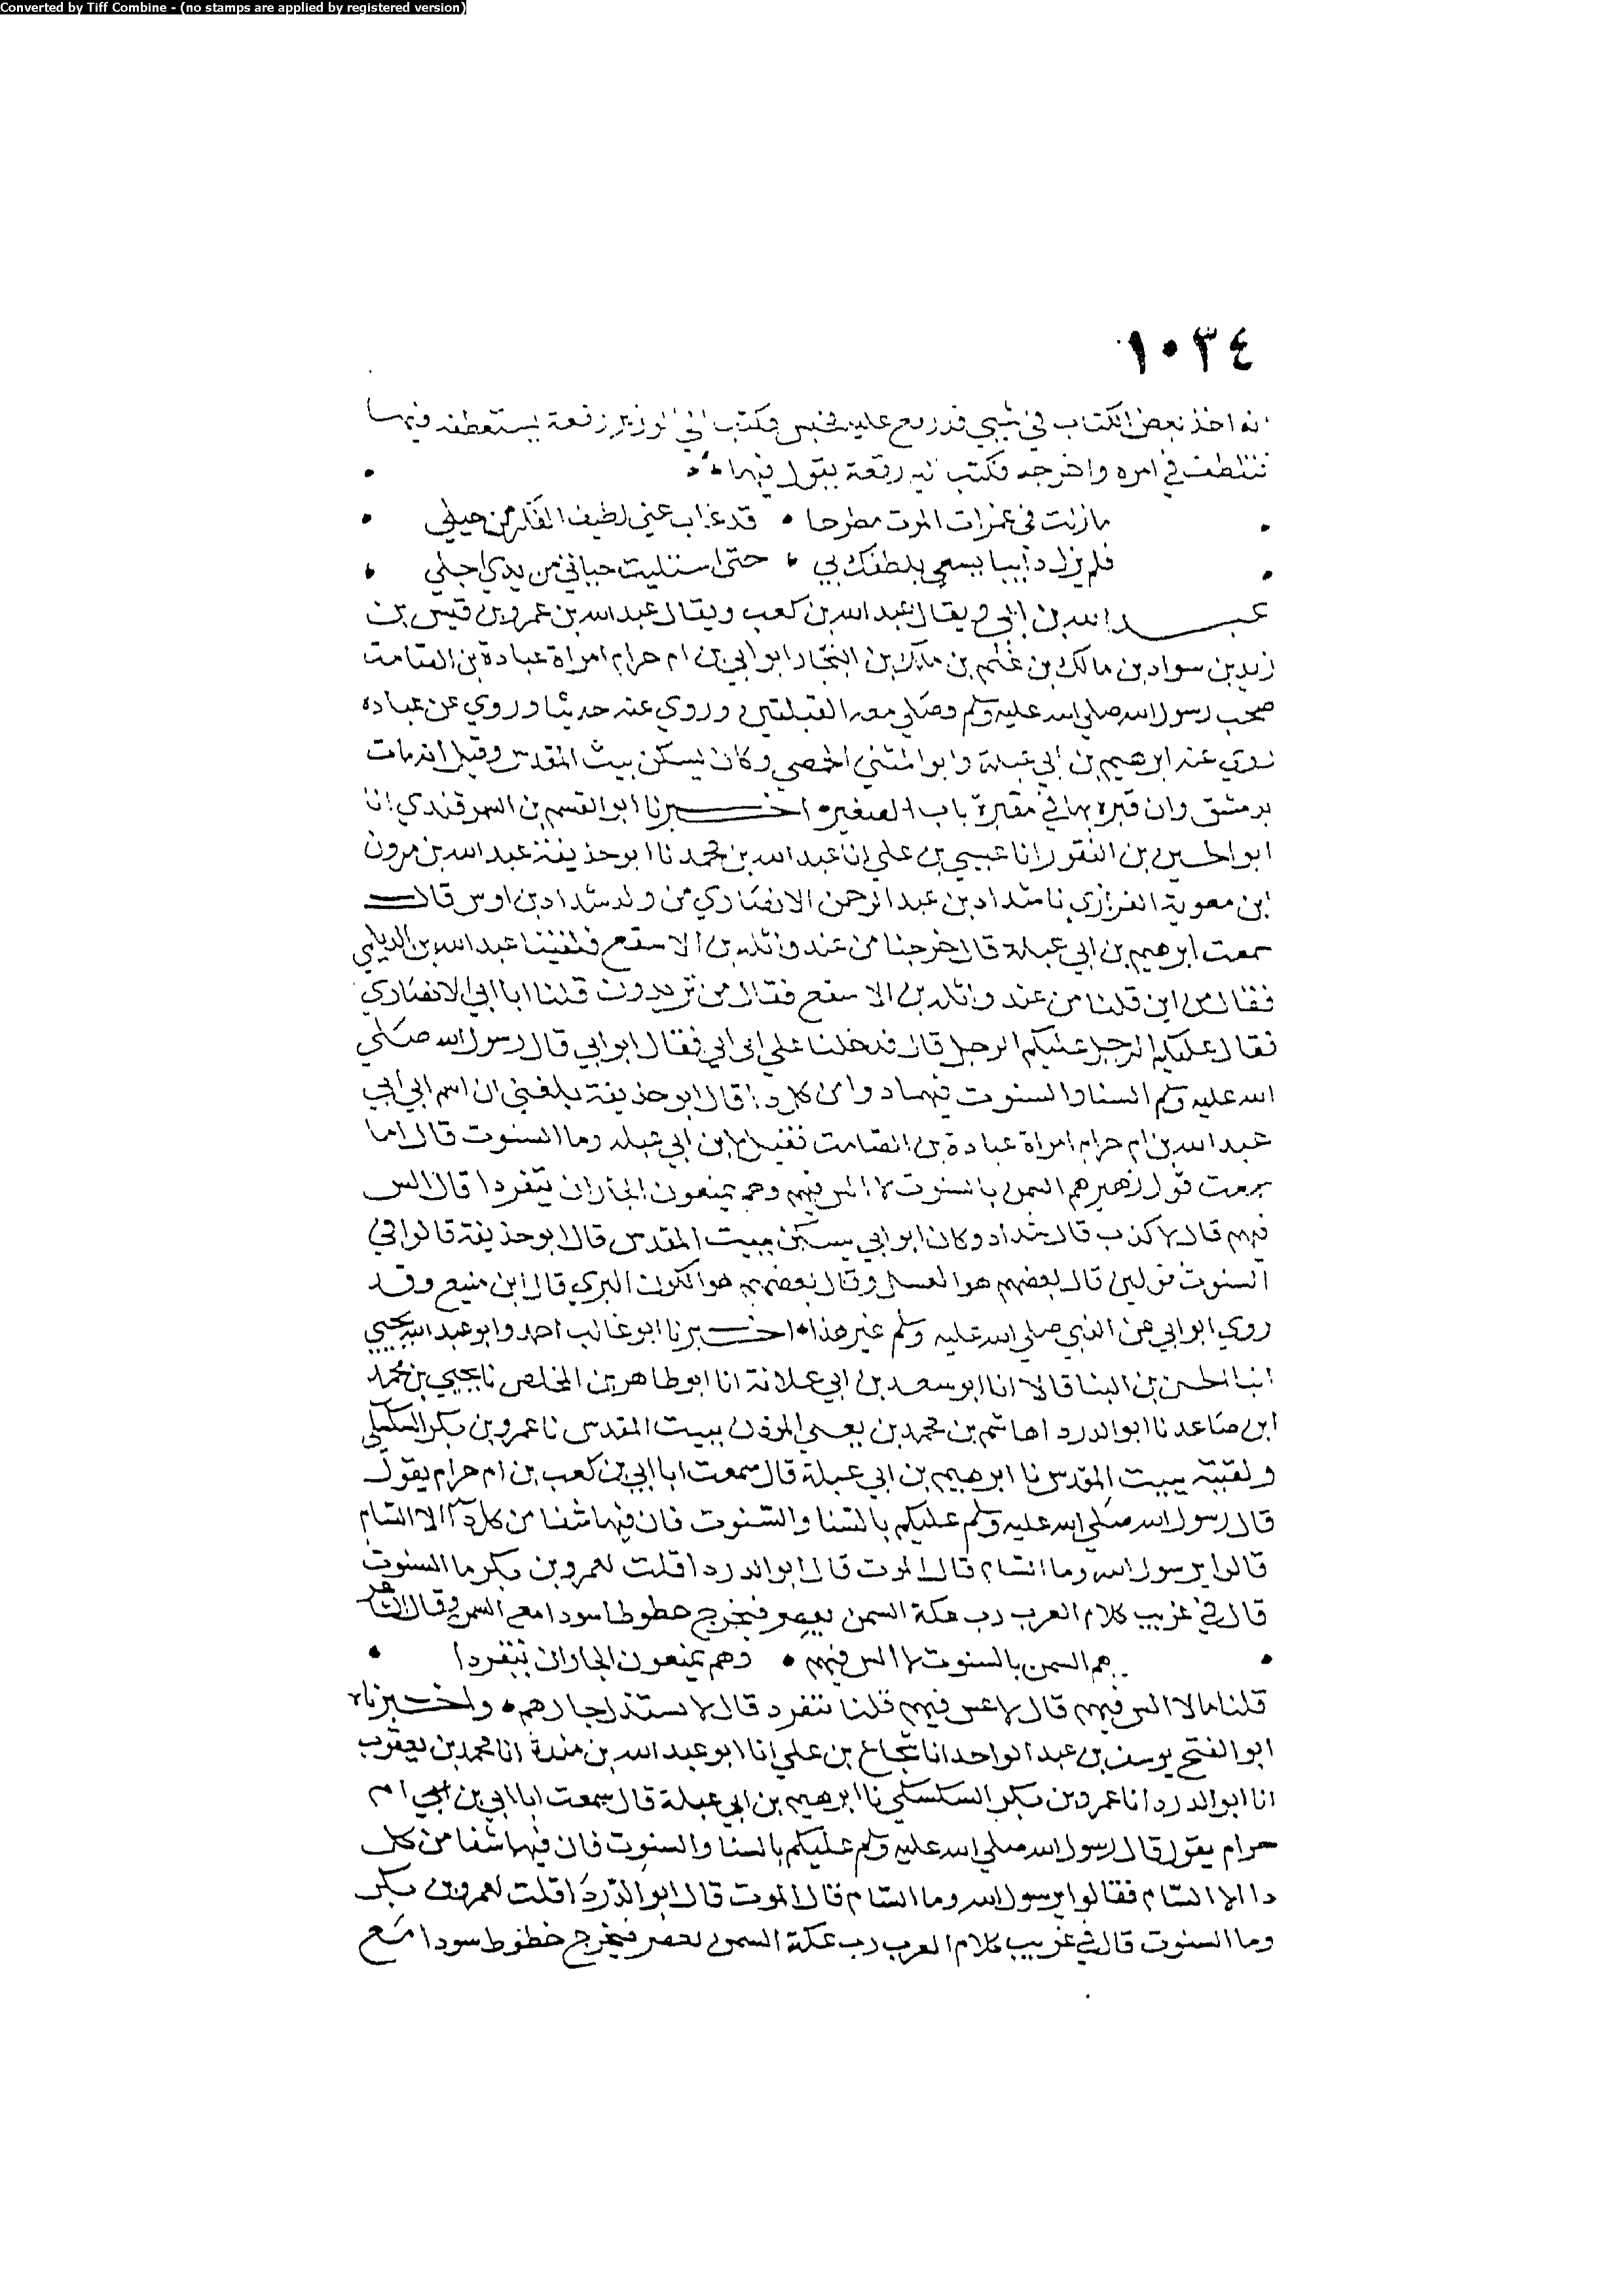 Converted by Tiff Combine - (no stamps are applied by registered version)
١٠٣٤
انه اخذ بعض الكتاب في شي قد رفع عليه فحبس فكتب الي الوزير رقعة يستعطفه فيها
فتلطف في امره واخرجه فكتب اليه رقعة يقول فيها
مازلت في غمرات الموت مطرحا • قد غاب عني لطيف الفكر من حيلي
فلم يزل دأيبا يسعي بلطفك بي • حتى استليت حياتي من يدي اجلي
عبد الله بن ابي ويقال عبد الله بن كعب ويقال عبد الله بن عمرو بن قيس بن
زيد بن سواد بن مالك بن غنم بن مالك بن النجار ابو ابي بن ام حرام امراة عبادة بن الصامت
صحب رسول الله صلي الله عليه وسلم وصلي معه القبلتين وروي عنه حديثا وروي عن عباده
روي عنه ابرهيم بن ابي عبلة وابو المثني الحمصي وكان يسكن بيت المقدس وقيل انه مات
بدمشق وان قبره بها في مقبرة باب الصغير • اخبرنا ابو القسم بن السمرقندي انا
ابو الحسين بن النقور انا عيسي بن علي انا عبد الله بن محمد نا ابو حذيفة عبد الله بن مرون
ابن معوية الفزاري نا شداد بن عبد الرحمن الانصاري من ولد شداد بن اوس قال
سمعت ابرهيم بن ابي عبلة قال خرجنا من عند واثله بن الاسقع فلقينا عبد الله بن الديلمي
فقال من اين قلنا من عند واثله بن الاسقع فقال من تريدون قلنا ابا ابي الانصاري
فقال عليكم الرجل عليكم الرجل قال فدخلنا علي ابي ابي فقال ابو ابي قال رسول الله صلي
الله عليه وسلم السنا والسنوت فيهما دوا من كل دا قال ابو حذيفة بلغني ان اسم ابي ابي
عبد الله بن ام حرام امراة عبادة بن الصامت فقيل لابن ابي عبله وما السنوت قال اما
سمعت قول زهير هم السمن بالسنوت لا الس فيهم وهم يمنعون الجار ان يتفردا قال الس
فيهم قال لا كذب قال شداد وكان ابو ابي يسكن ببيت المقدس قال ابو حذيفة قالوا في
السنوت قولين قال بعضهم هو العسل وقال بعضهم هو الكمون البري قال ابن منيع وقد
روي ابو ابي عن النبي صلي الله عليه وسلم غير هذا • اخبرنا ابو غالب احمد وابو عبد الله يحيي
ابنا الحسن بن البنا قالا انا ابو سعد بن ابي علانة انا ابو طاهر بن المخلص نا يحيي بن محمد
ابن صاعد نا ابو الدردا هاشم بن محمد بن يعلي الموذن ببيت المقدس نا عمرو بن بكر السكسكي
ولقيته ببيت المقدس نا ابرهيم بن ابي عبلة قال سمعت ابا ابي بن كعب بن ام حرام يقول
قال رسول الله صلي الله عليه وسلم عليكم بالسنا والسنوت فان فيها شفا من كل دآ الا السام
قالوا يرسول الله وما السام قال الموت قال ابو الدردا قلت لعمرو بن بكر ما السنوت
قال في غريب كلام العرب رب عكة السمن يعصر فيخرج خطوطا سودا مع السمن وقال الشاعر
هم السمن بالسنوت لا الس فيهم • وهم يمنعون الجار ان يتفردا
قلنا ما لا الس فيهم قال لا غس فيهم قلنا يتفرد قال لا يستذل جارهم • واخبرناه
ابو الفتح يوسف بن عبد الواحد انا شجاع بن علي انا ابو عبد الله بن مندة انا محمد بن يعقوب
انا ابو الدردا نا عمرو بن بكر السكسكي نا ابرهيم بن ابي عبلة قال سمعت ابا ابي بن ابي ام
حرام يقول قال رسول الله صلي الله عليه وسلم عليكم بالسنا والسنوت فان فيها شفا من كل
دا الا السام فقالوا يرسول الله وما السام قال الموت قال ابو الدردا قلت لعمرو بن بكر
وما السنوت قال في غريب كلام العرب رب عكة السمن يعصر فيخرج خطوط سودا مع